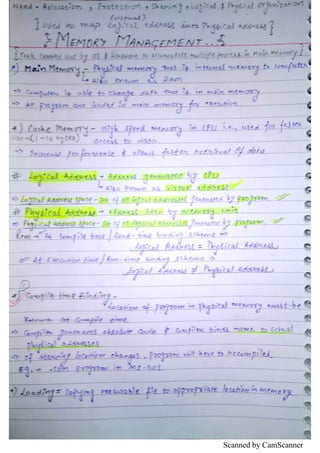 Need - Relocation, Protection, Sharing, Logical & Physical Organization
[Used to map Logical address into Physical address]
{ MEMORY MANAGEMENT...}
[Task carried out by OS & hardware to accomodate multiple process in main memory]
*) Main Memory - Physical memory that is internal memory to computer
Also known as RAM
⇒ Computer is able to change data that is in main memory
⇒ All program are loaded in main memory for execution.
*) Cache Memory - High speed memory in CPU i.e., used for faster
access to data.
⇒ Increase performance & allows faster retrieval of data
# Logical Address - Address generated by CPU
Also known as Virtual address
⇒ Logical Address Space - Set of all logical addresses generated by program
# Physical Address - Address seen by memory unit
⇒ Physical Address Space - Set of all addresses generated by program.
In compile time / load-time binding scheme ⇒
Logical Address = Physical Address.
✓ At Execution time / Run time binding scheme ⇒
Logical Address ≠ Physical Address.
*) Compile-time Binding -
Location of program in physical memory must be
known at compile time
⇒ Compiler generates absolute code & compiler binds name to actual
physical addresses
⇒ If starting location changes, program will have to recompiled.
Eg. → .com program in MS-DOS
*) Loading = Copying executable file to appropriate location in memory
Scanned by CamScanner